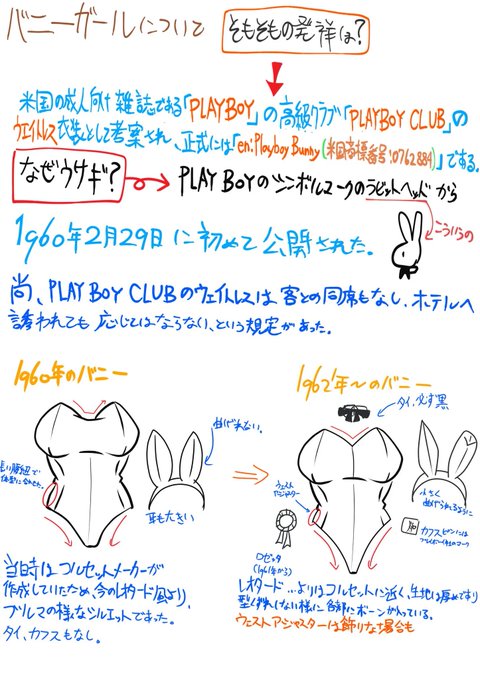 バニーガールについて
そもそもの発祥は?
米国の成人向け雑誌である「PLAYBOY」の高級クラブ「PLAYBOY CLUB」の
ウェイトレス衣装として考案され、正式には「en:Playboy Bunny(米国商標番号:0762884)」である。
なぜウサギ?
PLAY BOYのシンボルマークのラビットヘッドから
こういうの
1960年2月29日に初めて公開された。
尚、PLAY BOY CLUBのウェイトレスは客との同席もなし、ホテルへ
誘われても応じてはならない、という規定があった。
1960年のバニー
曲げれない。
耳も大きい
当時はコルセットメーカーが
作成していたため、今のレオタード風より、
ブルマの様なシルエットであった。
タイ、カフスもなし。
1962年〜のバニー
タイ、必ず黒
ウェスト
アジャスター
小さく
曲げられるように
カフスピンには
ロゼッタ
(1961年から)
レオタード…よりはコルセットに近く、生地は厚めであり
型くずれしない様に各部にボーンが入っている。
ウェストアジャスターは飾りな場合も